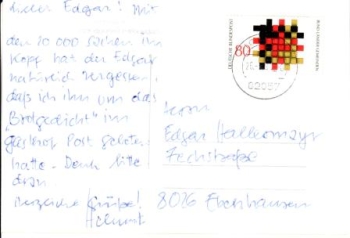 Lieber Edgar! Mit
den 10 000 Sachen im
Kopf hat der Edgar
natürlich vergessen,
daß ich ihn um das
"Brotgedicht" im
Gasthof Post gebeten
hatte. Denk bitte
dran.
Herzliche Grüße!
Helmut
80
DEUTSCHE BUNDESPOST
Herrn
Edgar
8026 Ebenhausen